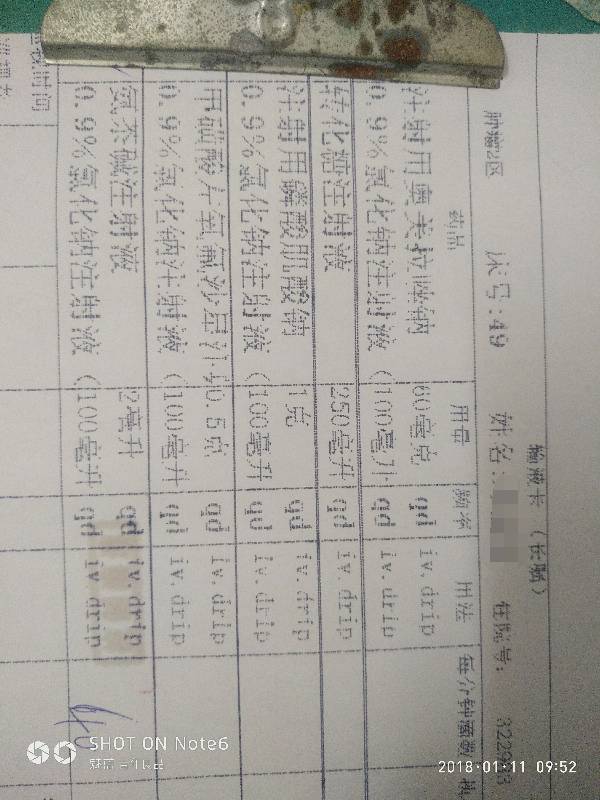 输液卡（长期）
肿瘤2区 床号:49 姓名: 住院号:
药品 用量 频率 用法 每分钟滴数
注射用奥美拉唑钠 60毫克 qd iv.drip
0.9%氯化钠注射液 （100毫升 qd iv.drip
转化糖注射液 250毫升 qd iv.drip
注射用磷酸肌酸钠 1克 qd iv.drip
0.9%氯化钠注射液 （100毫升 qd iv.drip
甲磺酸左氧氟沙星 0.5克 qd iv.drip
0.9%氯化钠注射液 （100毫升 qd iv.drip
氨溴注射液 2毫升 qd iv.drip
0.9%氯化钠注射液 （100毫升 qd iv.drip
40
时间
SHOT ON Note6
魅蓝
2018·01·11 09:52